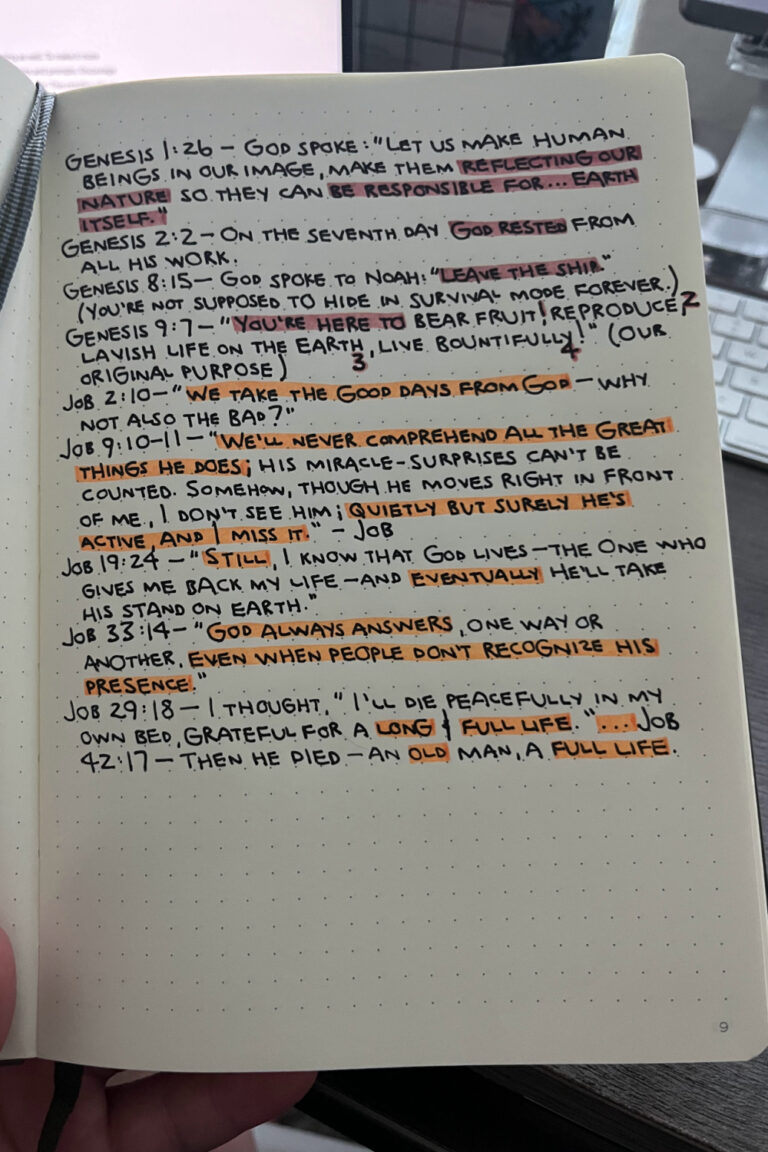 GENESIS 1:26 – GOD SPOKE: "LET US MAKE HUMAN
BEINGS IN OUR IMAGE, MAKE THEM REFLECTING OUR
NATURE SO THEY CAN BE RESPONSIBLE FOR... EARTH
ITSELF."
GENESIS 2:2 – ON THE SEVENTH DAY GOD RESTED FROM
ALL HIS WORK.
GENESIS 8:15 – GOD SPOKE TO NOAH: "LEAVE THE SHIP."
(YOU'RE NOT SUPPOSED TO HIDE IN SURVIVAL MODE FOREVER.)
GENESIS 9:7 – "YOU'RE HERE TO BEAR FRUIT! REPRODUCE, 2
LAVISH LIFE ON THE EARTH, LIVE BOUNTIFULLY!" (OUR
3 4
ORIGINAL PURPOSE)
JOB 2:10 – "WE TAKE THE GOOD DAYS FROM GOD – WHY
NOT ALSO THE BAD?"
JOB 9:10-11 – "WE'LL NEVER COMPREHEND ALL THE GREAT
THINGS HE DOES; HIS MIRACLE-SURPRISES CAN'T BE
COUNTED. SOMEHOW, THOUGH HE MOVES RIGHT IN FRONT
OF ME, I DON'T SEE HIM; QUIETLY BUT SURELY HE'S
ACTIVE, AND I MISS IT." – JOB
JOB 19:24 – "STILL, I KNOW THAT GOD LIVES – THE ONE WHO
GIVES ME BACK MY LIFE – AND EVENTUALLY HE'LL TAKE
HIS STAND ON EARTH."
JOB 33:14 – "GOD ALWAYS ANSWERS, ONE WAY OR
ANOTHER, EVEN WHEN PEOPLE DON'T RECOGNIZE HIS
PRESENCE."
JOB 29:18 – I THOUGHT, "I'LL DIE PEACEFULLY IN MY
OWN BED, GRATEFUL FOR A LONG & FULL LIFE." ... JOB
42:17 – THEN HE DIED – AN OLD MAN, A FULL LIFE.
9